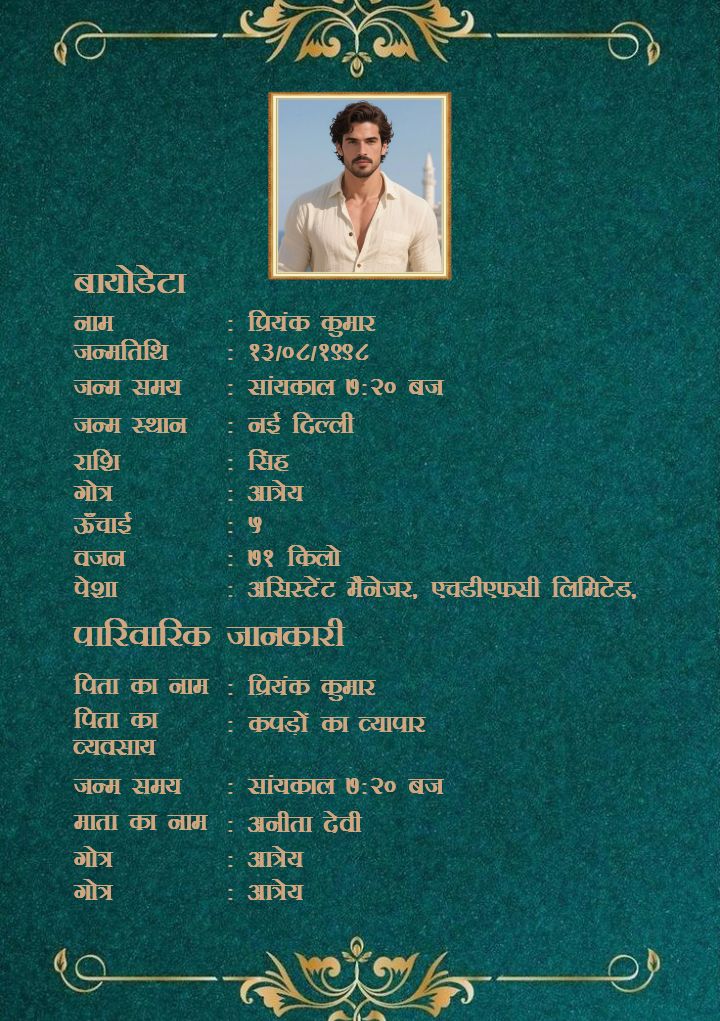 बायोडेटा
नाम : प्रियंक कुमार
जन्मतिथि : १३/०८/१९९८
जन्म समय : सांयकाल ७:२० बज
जन्म स्थान : नई दिल्ली
राशि : सिंह
गोत्र : आत्रेय
ऊँचाई : ५
वजन : ७१ किलो
पेशा : असिस्टेंट मैनेजर, एचडीएफसी लिमिटेड,
पारिवारिक जानकारी
पिता का नाम : प्रियंक कुमार
पिता का व्यवसाय : कपड़ों का व्यापार
जन्म समय : सांयकाल ७:२० बज
माता का नाम : अनीता देवी
गोत्र : आत्रेय
गोत्र : आत्रेय